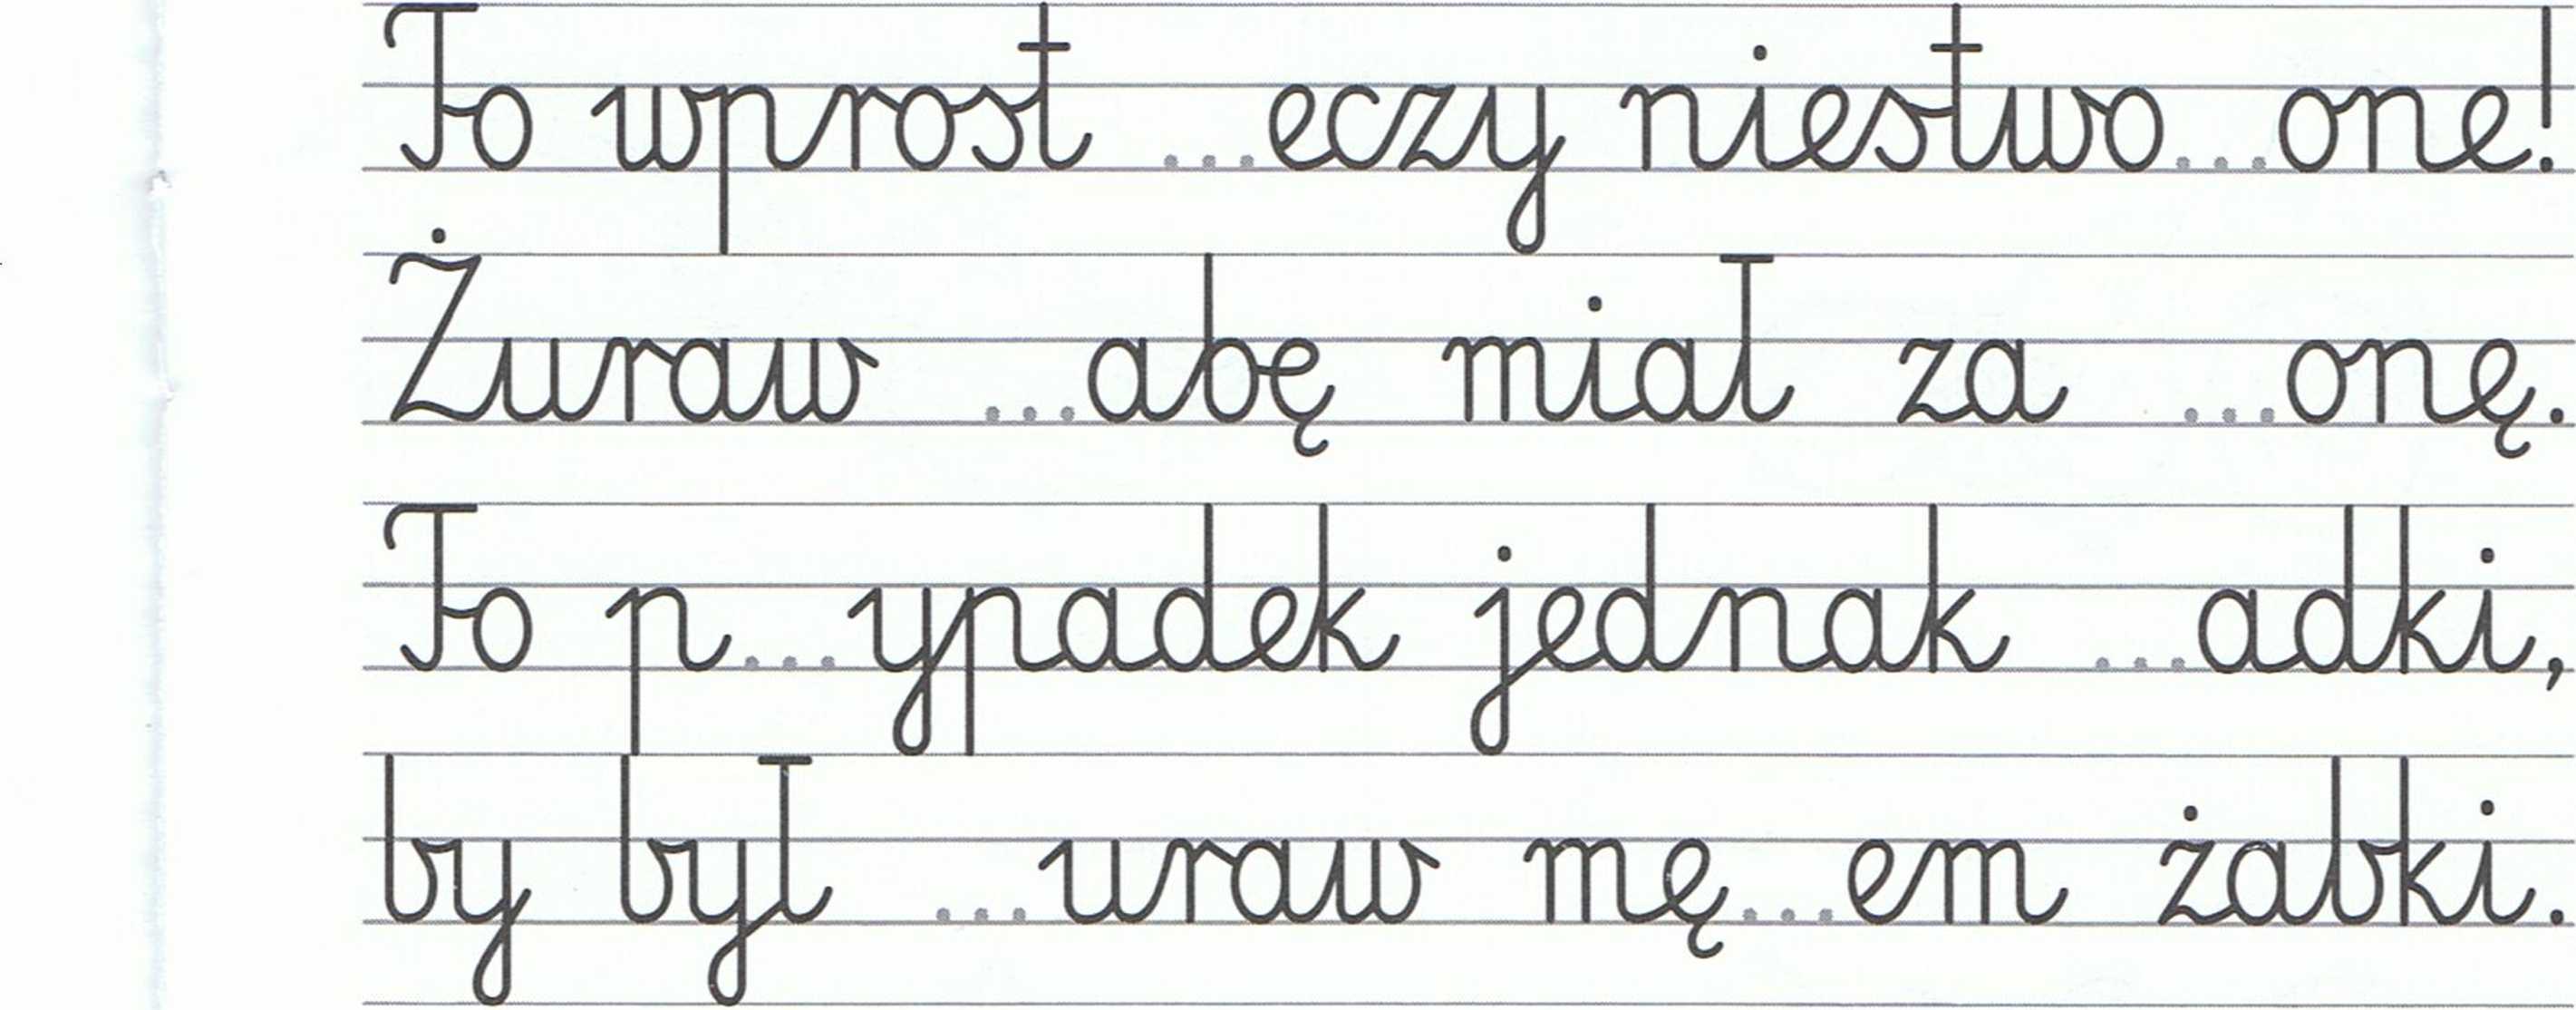 To wprost ...eczy niestwo...one!
Żuraw ...abę miał za ...onę.
To p...ypadek jednak ...adki,
by był ...uraw mę...em żabki.